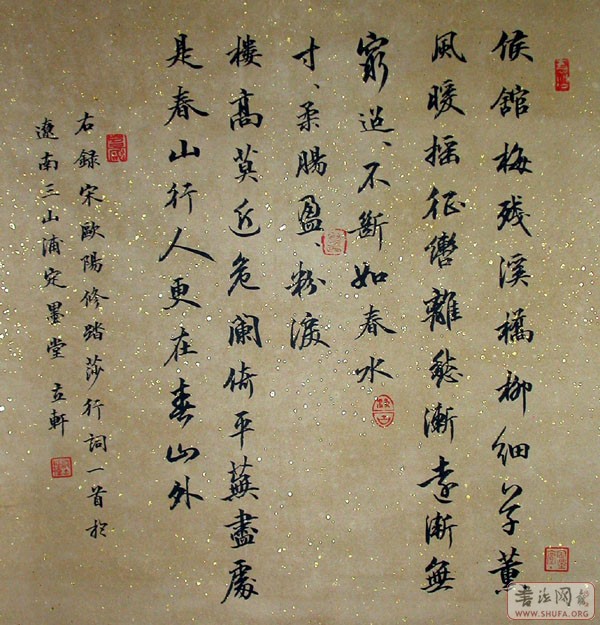 候館梅残溪橋柳細草薰
風暖摇征轡離愁漸遠漸無
窮迢、不斷如春水
寸、柔腸盈、粉淚
樓高莫近危闌倚平蕪盡處
是春山行人更在春山外
右録宋歐陽修踏莎行詞一首於
遼南三山浦定墨堂立軒
WWW.SHUFA.ORG